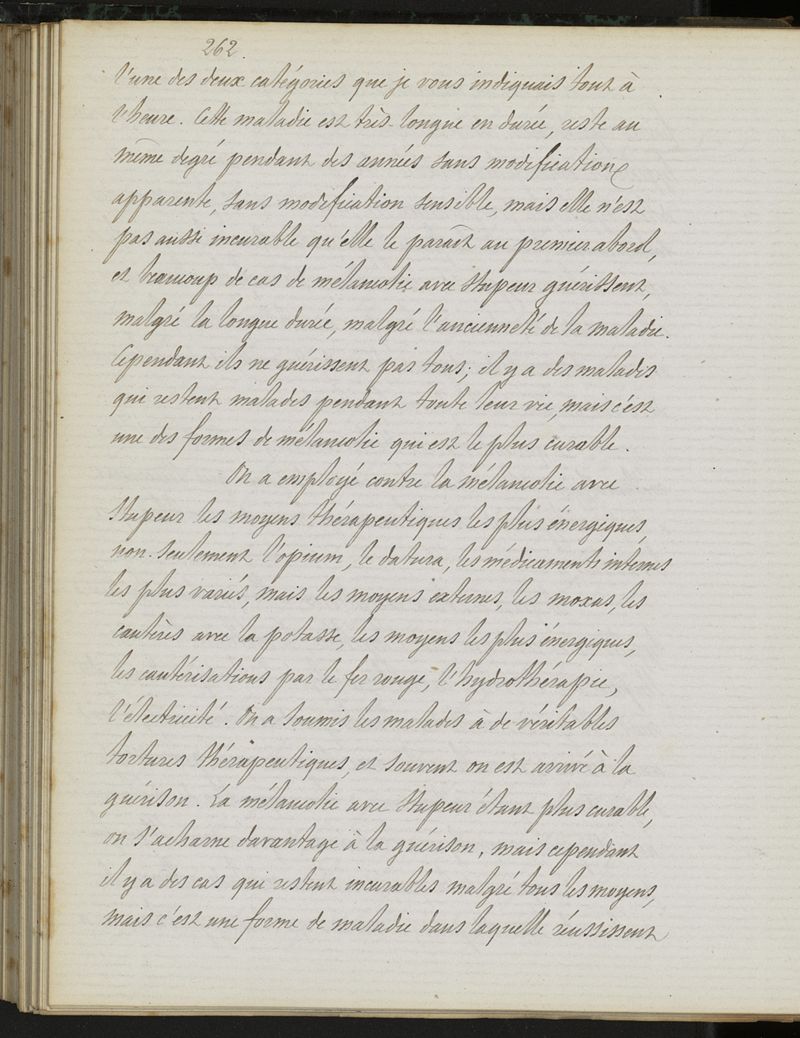 262.
l'une des deux catégories que je vous indiquais tout à
l'heure. Cette maladie est très-longue en durée, reste au
même degré pendant des années sans modification
apparente, sans modification sensible, mais elle n'est
pas aussi incurable qu'elle le paraît au premier abord,
et beaucoup de cas de mélancolie avec stupeur guérissent,
malgré la longue durée, malgré l'ancienneté de la maladie.
Cependant ils ne guérissent pas tous; il y a des malades
qui restent malades pendant toute leur vie, mais c'est
une des formes de mélancolie qui est le plus curable.
On a employé contre la mélancolie avec
stupeur les moyens thérapeutiques les plus énergiques,
non-seulement l'opium, le datura, les médicaments internes
les plus variés, mais les moyens externes, les moxas, les
cautères avec la potasse, les moyens les plus énergiques,
les cautérisations par le fer rouge, l'hydrothérapie,
l'électricité. On a soumis les malades à de véritables
tortures thérapeutiques, et souvent on est arrivé à la
guérison. La mélancolie avec stupeur étant plus curable,
on s'acharne davantage à la guérison, mais cependant
il y a des cas qui restent incurables malgré tous les moyens,
mais c'est une forme de maladie dans laquelle réussissent